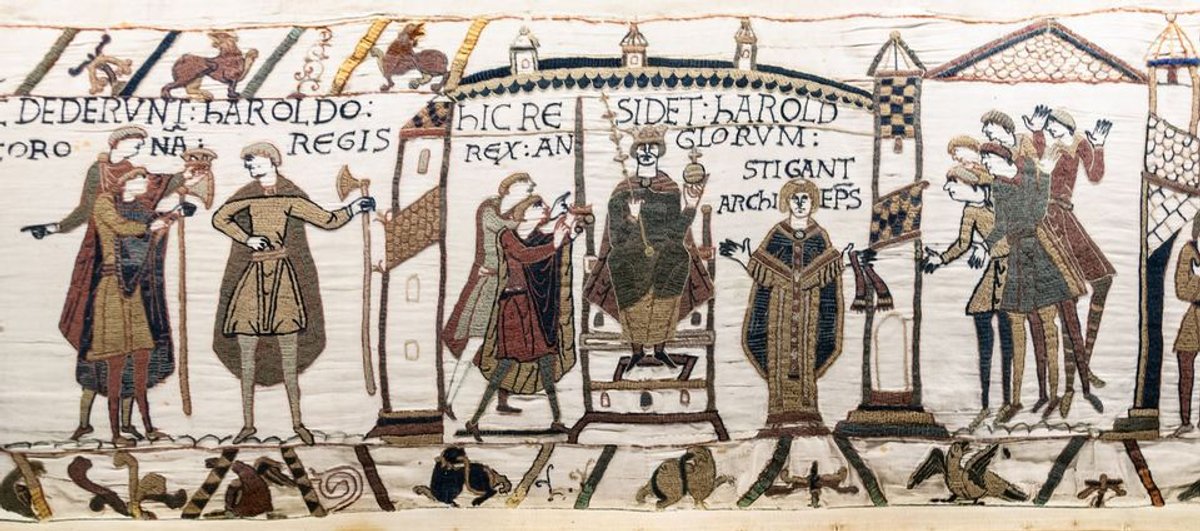 DEDERVNT: hAROLDO:
CORO NÃ: REGIS
hIC RE SIDET: hAROLD
REX: AN GLORVM:
STIGANT
ARCHI EP̃S